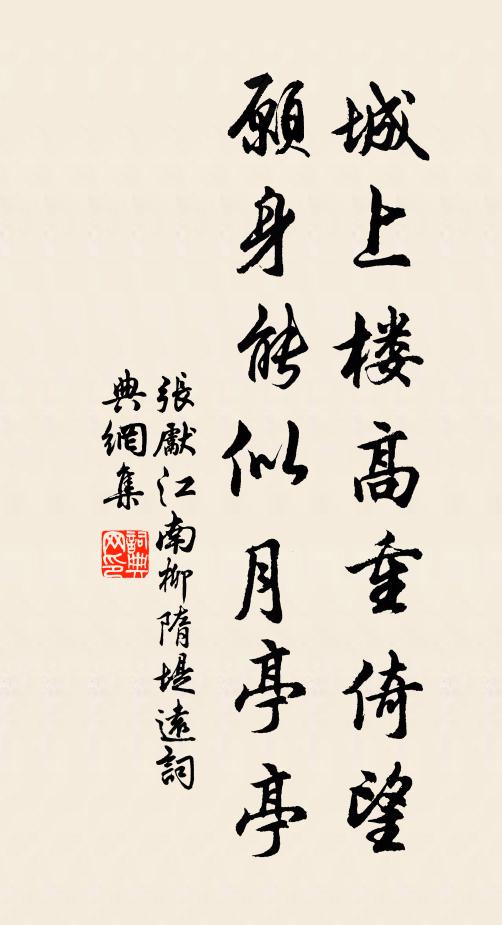 城上楼高重倚望
願身能似月亭亭
張獻江南柳隋堤遠詞
典網集
詞典
网印